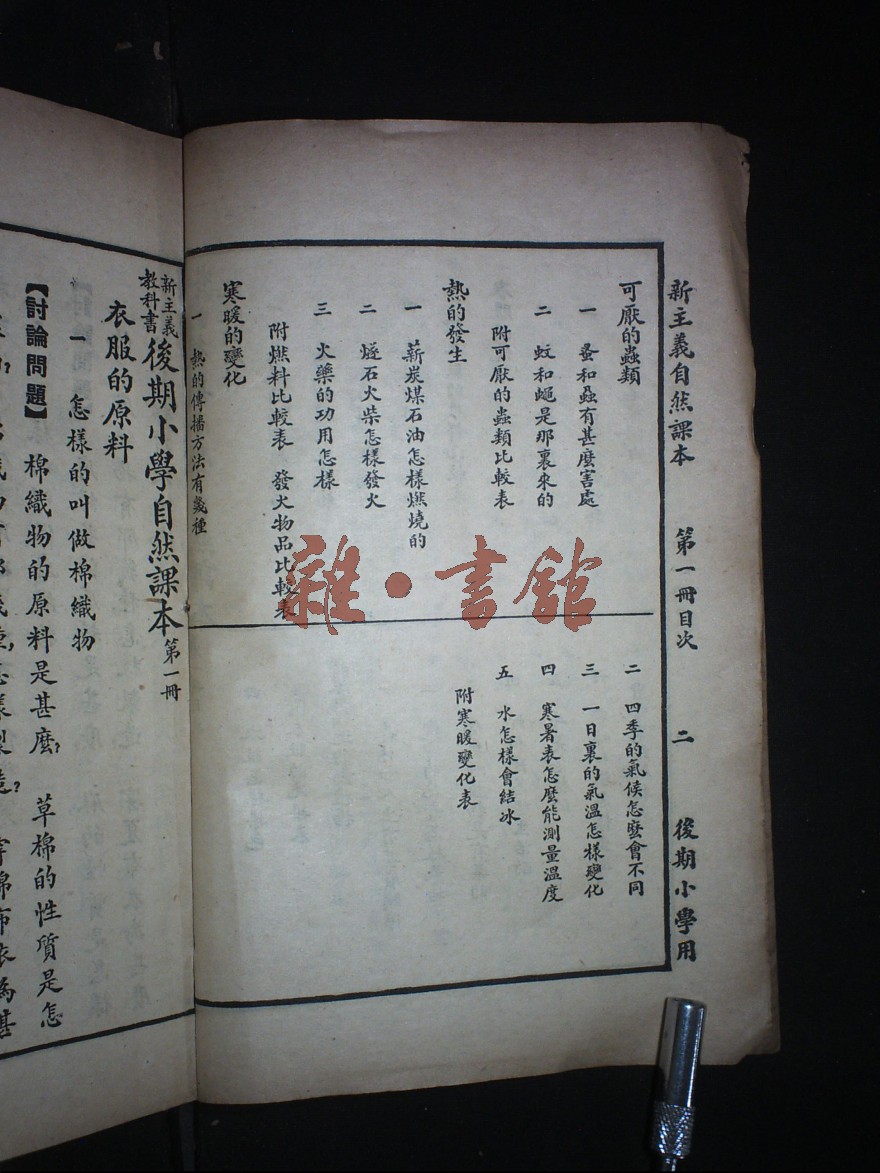 新主義自然課本 第一冊目次 二 後期小學用
可厭的蟲類
一 蚤和蝨有甚麼害處
二 蚊和蠅是那裏來的
附可厭的蟲類比較表
熱的發生
一 薪炭煤石油怎樣燃燒的
二 燧石火柴怎樣發火
三 火藥的功用怎樣
附燃料比較表 發火物品比較表
寒暖的變化
一 熱的傳播方法有幾種
二 四季的氣候怎麼會不同
三 一日裏的氣溫怎樣變化
四 寒暑表怎麼能測量溫度
五 水怎樣會結冰
附寒暖變化表
新主義教科書 後期小學自然課本 第一冊
衣服的原料
一 怎樣的叫做棉織物
【討論問題】 棉織物的原料是甚麼? 草棉的性質是怎
雜·書館